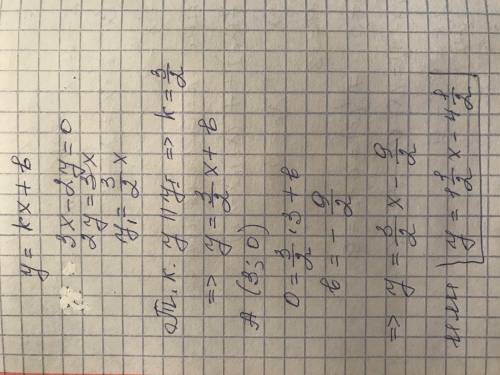 y = kx + b
3x - 2y = 0
2y = 3x
y₁ = 3/2 x
Т.к. y || y₁ => k = 3/2
=> y = 3/2 x + b
A (3; 0)
0 = 3/2 · 3 + b
b = - 9/2
=> y = 3/2 x - 9/2
или y = 1 1/2 x - 4 1/2